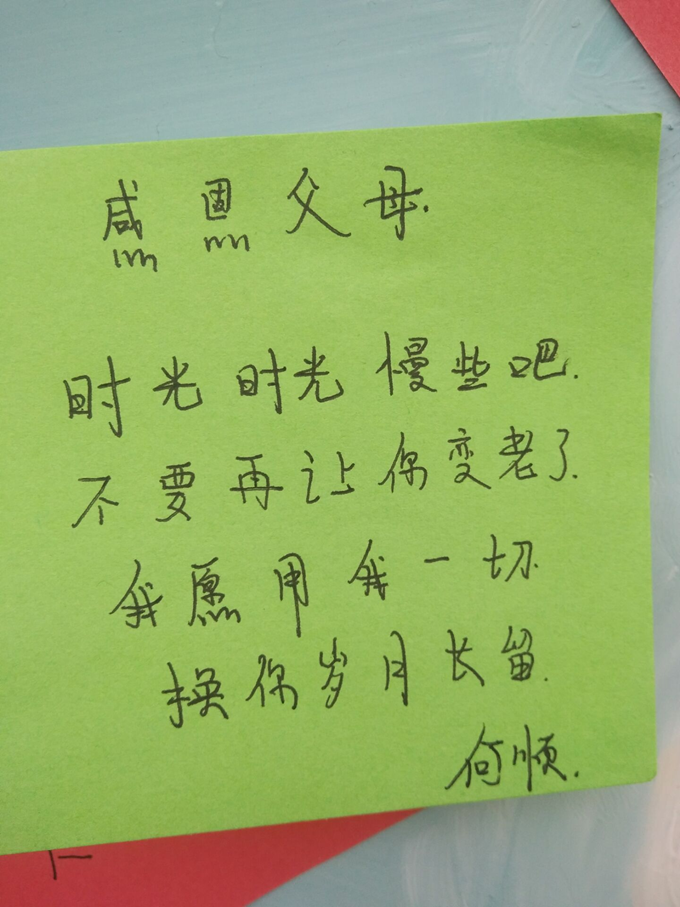 感恩父母.
时光时光慢些吧.
不要再让你变老了.
我愿用我一切.
换你岁月长留.
何顺.